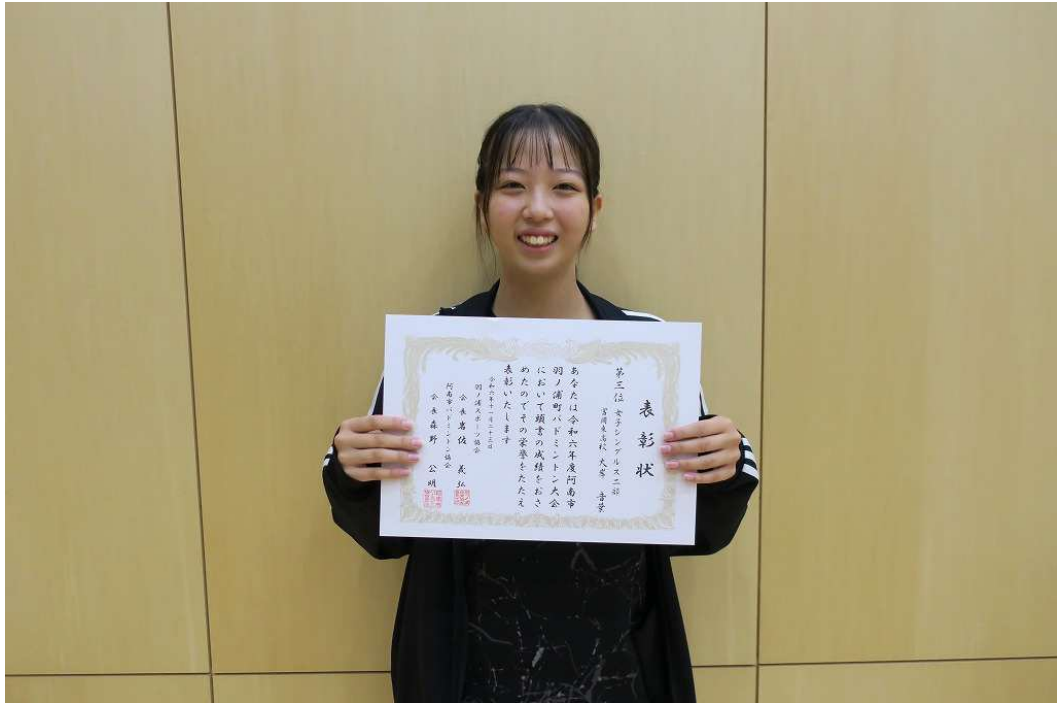 表彰状
第三位 女子シングルス二部
富岡東高校 大岸 音葉
あなたは令和六年度阿南市
羽ノ浦町バドミントン大会
において頭書の成績をおさ
めたのでその栄誉をたたえ
表彰いたします
令和六年十一月二十三日
羽ノ浦スポーツ協会
会長 岩佐 義弘
阿南市バドミントン協会
会長 森野 公明